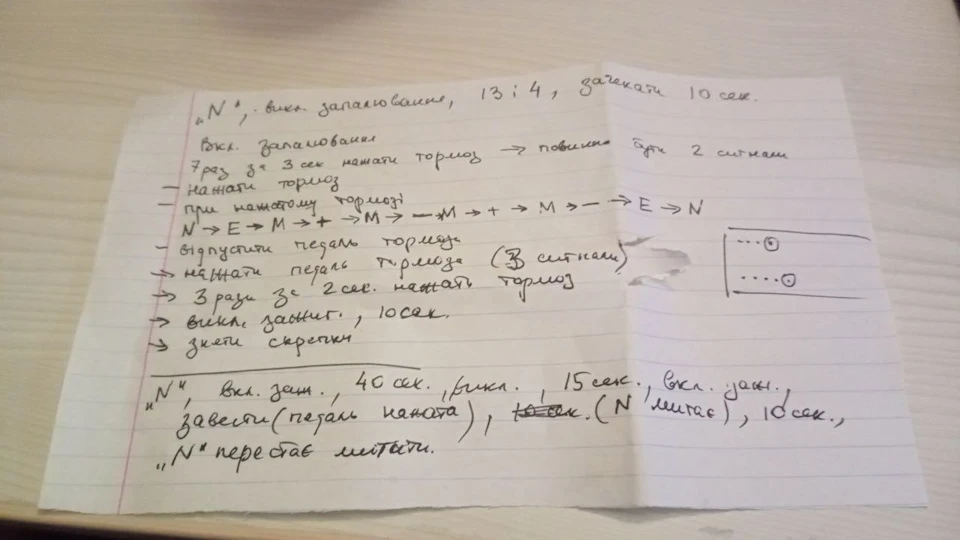 „N", викл. запалювання, 13 і 4, зачекати 10 сек.
Вкл. запалювання
7 раз за 3 сек нажати тормоз → повинно бути 2 сигнали
— нажати тормоз
— при нажатому тормозі
N → E → M → + → M → — → M → + → M → — → E → N
— відпустити педаль тормоза
→ нажати педаль тормоза (3 сигнали)
→ 3 рази за 2 сек. нажать тормоз
→ викл. зажиг., 10 сек.
→ зняти скрепки
„N", вкл. заж., 40 сек., викл., 15 сек., вкл. заж.,
завести (педаль нажата), (N мигає), 10 сек.,
„N" перестає мигати.